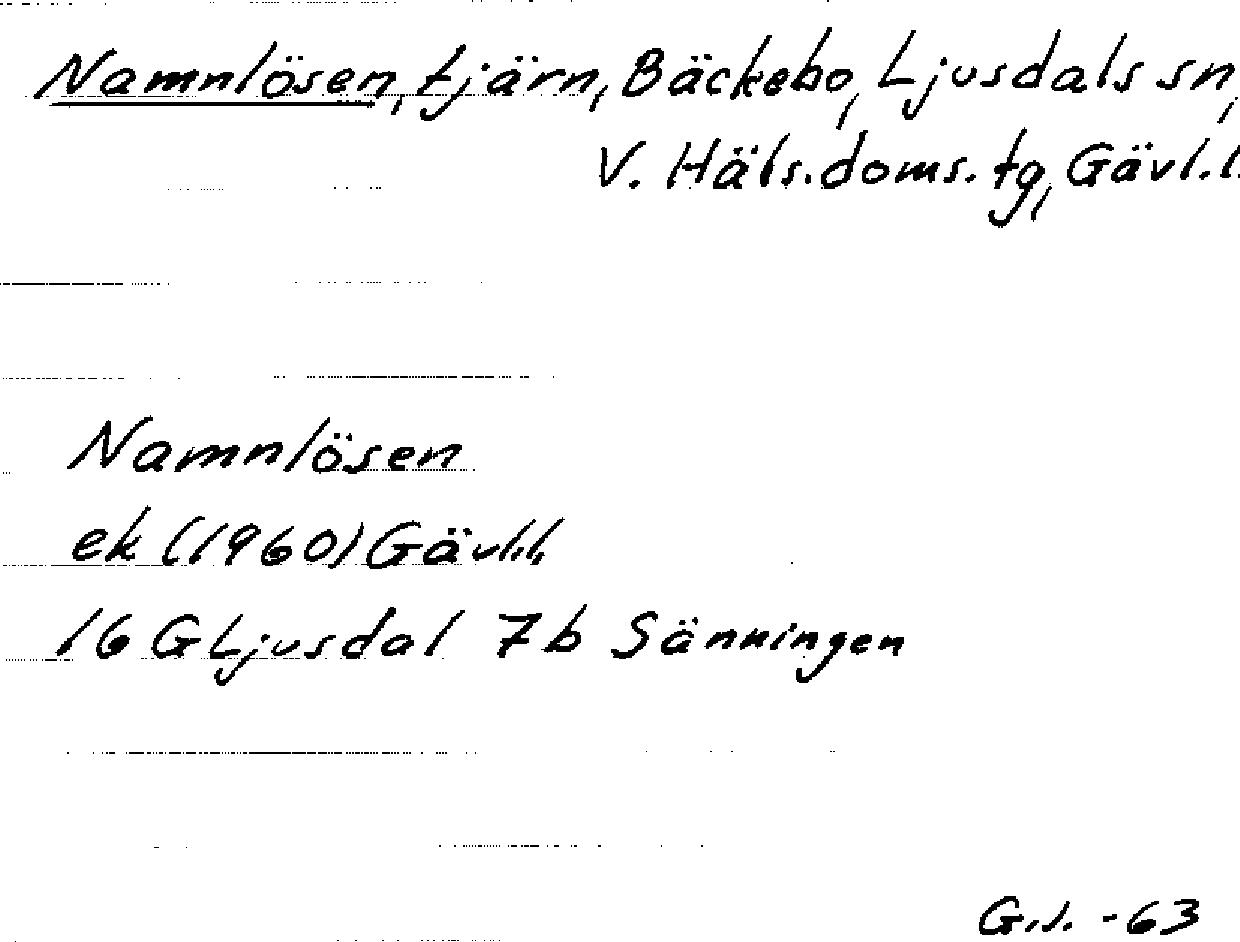 Namnlösen, tjärn, Bäckebo, Ljusdals sn,
V. Häls. doms. tg, Gävl. l.
Namnlösen
ek (1960) Gävl.l.
16 G Ljusdal 7b Sänningen
G.J. -63